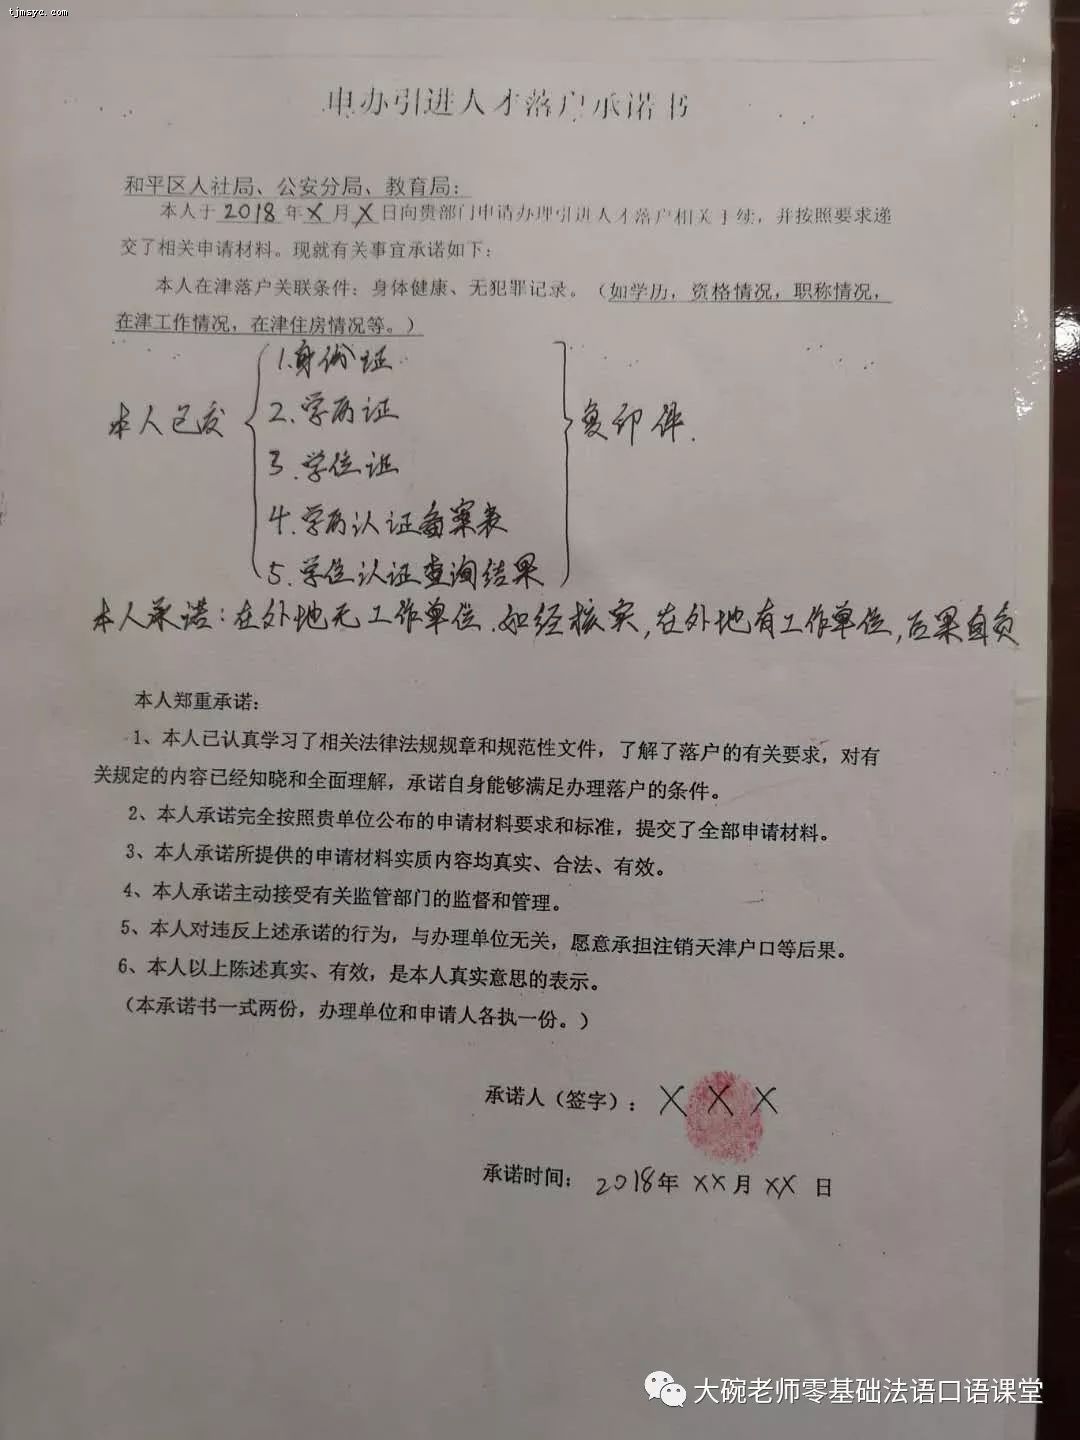 tjmsyc.com
申办引进人才落户承诺书
和平区人社局、公安分局、教育局：
本人于2018年X月X日向贵部门申请办理引进人才落户相关手续，并按照要求递
交了相关申请材料。现就有关事宜承诺如下：
本人在津落户关联条件：身体健康、无犯罪记录。（如学历，资格情况，职称情况，
在津工作情况，在津住房情况等。）
1.身份证
2.学历证
本人已交 复印件.
3.学位证
4.学历认证备案表
5.学位认证查询结果
本人承诺：在外地无工作单位.如经核实，在外地有工作单位，后果自负
本人郑重承诺：
1、本人已认真学习了相关法律法规规章和规范性文件，了解了落户的有关要求，对有
关规定的内容已经知晓和全面理解，承诺自身能够满足办理落户的条件。
2、本人承诺完全按照贵单位公布的申请材料要求和标准，提交了全部申请材料。
3、本人承诺所提供的申请材料实质内容均真实、合法、有效。
4、本人承诺主动接受有关监管部门的监督和管理。
5、本人对违反上述承诺的行为，与办理单位无关，愿意承担注销天津户口等后果。
6、本人以上陈述真实、有效，是本人真实意思的表示。
（本承诺书一式两份，办理单位和申请人各执一份。）
承诺人（签字）：X X X
承诺时间：2018年XX月XX日
大碗老师零基础法语口语课堂